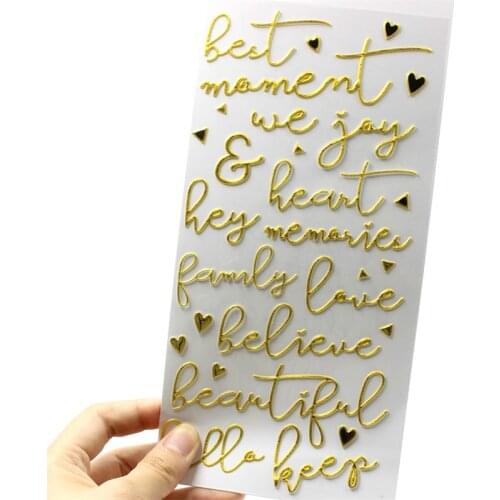 best
moment
we joy
& heart
hey memories
family love
believe
beautiful
hello keep